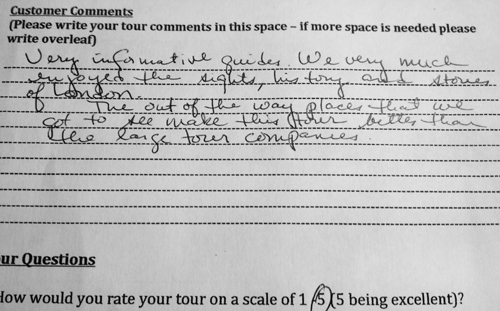 Customer Comments
(Please write your tour comments in this space – if more space is needed please
write overleaf)
Very informative guides. We very much
enjoyed the sights, history and stories
of London.
The out of the way places that we
got to see make this tour better than
the large tour companies.
ur Questions
How would you rate your tour on a scale of 1-5 (5 being excellent)?